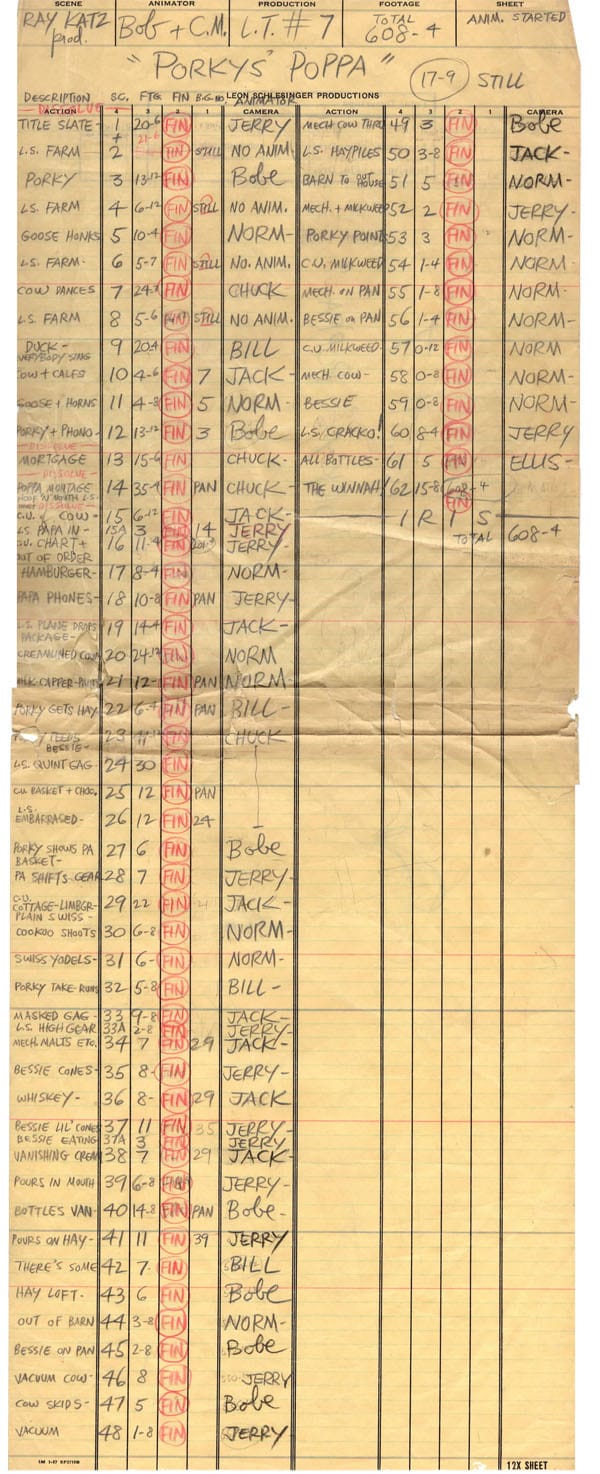 SCENE ANIMATOR PRODUCTION FOOTAGE SHEET
RAY KATZ prod. Bob + C.M. L.T. # 7 TOTAL 608-4 ANIM. STARTED
"PORKYS' POPPA" 17-9 STILL
LEON SCHLESINGER PRODUCTIONS
DESCRIPTION SC. FTG. FIN B.G. NO. ANIMATOR
ACTION 4 3 2 1 CAMERA ACTION 4 3 2 1 CAMERA
DISSOLVE
TITLE SLATE- 1 20-6 FIN JERRY
+
L.S. FARM 2 FIN STILL NO ANIM
PORKY 3 13-12 FIN Bobe
L.S. FARM 4 6-12 FIN STILL NO ANIM.
GOOSE HONKS 5 10-4 FIN NORM-
L.S. FARM- 6 5-7 FIN STILL NO. ANIM.
COW DANCES 7 FIN CHUCK
L.S. FARM 8 5-6 FIN STILL NO ANIM.
DUCK- EVERYBODY SING 9 20-4 FIN BILL
COW + CALFS 10 4-6 FIN 7 JACK-
GOOSE + HORNS 11 4-8 FIN 5 NORM-
PORKY + PHONO- 12 13-12 FIN 3 Bobe
DISSOLVE
MORTGAGE 13 15-6 FIN CHUCK-
DISSOLVE
POPPA MONTAGE 14 35-4 FIN PAN CHUCK-
DISSOLVE
C.U. of COW- 15 6-12 FIN JACK-
L.S. PAPA IN- 15A 3 FIN 14 JERRY
C.U. CHART + OUT OF ORDER 16 11-4 FIN JERRY-
HAMBURGER- 17 8-4 FIN NORM-
PAPA PHONES- 18 10-8 FIN PAN JERRY-
L.S. PLANE DROPS PACKAGE- 19 14-4 FIN JACK-
CREAMLINED COW 20 24-12 FIN NORM
MILK-CAPPER- 21 12- FIN PAN NORM-
PORKY GETS HAY 22 6-4 FIN PAN BILL-
PORKY FEEDS BESSIE- 23 FIN CHUCK
L.S. QUINT GAG- 24 30 FIN
C.U. BASKET + CHOC. 25 12 FIN PAN
L.S. EMBARRASED- 26 12 FIN 24
PORKY SHOWS PA BASKET- 27 6 FIN Bobe
PA SHIFTS GEAR 28 7 FIN JERRY-
C.U. COTTAGE-LIMBGR- PLAIN SWISS- 29 22 FIN JACK-
COOKOO SHOOTS 30 6-8 FIN NORM-
SWISS YODELS- 31 6- FIN NORM-
PORKY TAKE-RUNS 32 5-8 FIN BILL-
MASKED GAG- 33 9-8 FIN JACK-
L.S. HIGH GEAR 33A 2-8 FIN JERRY-
MECH. MALTS ETC. 34 7 FIN 29 JACK-
BESSIE CONES- 35 8- FIN JERRY-
WHISKEY- 36 8- FIN 29 JACK
BESSIE LIL' CONES 37 11 FIN 35 JERRY-
BESSIE EATING 37A 3 FIN JERRY
VANISHING CREAM 38 7 FIN 29 JACK-
POURS IN MOUTH 39 6-8 FIN JERRY-
BOTTLES VAN- 40 14-8 FIN PAN Bobe-
POURS ON HAY- 41 11 FIN 39 JERRY
THERE'S SOME 42 7- FIN BILL
HAY LOFT- 43 6 FIN Bobe
OUT OF BARN 44 3-8 FIN NORM-
BESSIE ON PAN 45 2-8 FIN Bobe
VACUUM COW- 46 8 FIN JERRY
COW SKIDS- 47 5 FIN Bobe
VACUUM 48 1-8 FIN JERRY
MECH COW THRU 49 3 FIN Bobe
L.S. HAYPILES 50 3-8 FIN JACK-
BARN TO OUT HOUSE 51 5 FIN NORM-
MECH. + MILKWEED 52 2 FIN JERRY-
PORKY POINTS 53 3 FIN NORM-
C.U. MILKWEED 54 1-4 FIN NORM-
MECH. ON PAN 55 1-8 FIN NORM-
BESSIE ON PAN 56 1-4 FIN NORM-
C.U. MILKWEED- 57 0-12 FIN NORM
MECH. COW- 58 0-8 FIN NORM-
BESSIE 59 0-8 FIN NORM-
L.S. CRACKO! 60 8-4 FIN JERRY
ALL BOTTLES- 61 5 FIN ELLIS-
THE WINNAH! 62 15-8 608-4 FIN
- I R I S -
TOTAL 608-4
12X SHEET